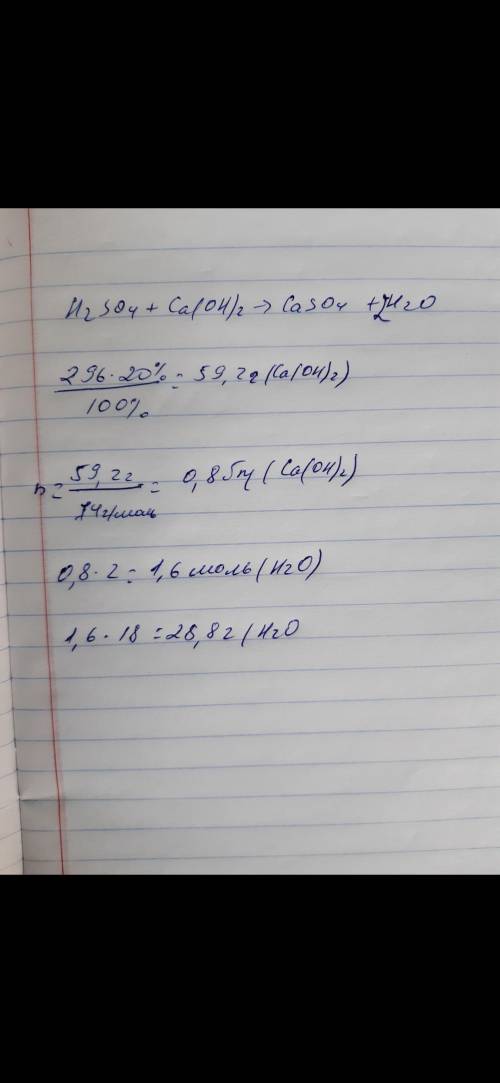 H₂SO₄ + Ca(OH)₂ → CaSO₄ + 2H₂O
296 · 20% / 100% = 59,2г (Ca(OH)₂)
n = 59,2г / 74г/моль = 0,8 (Ca(OH)₂)
0,8 · 2 = 1,6 моль (H₂O)
1,6 · 18 = 28,8г (H₂O